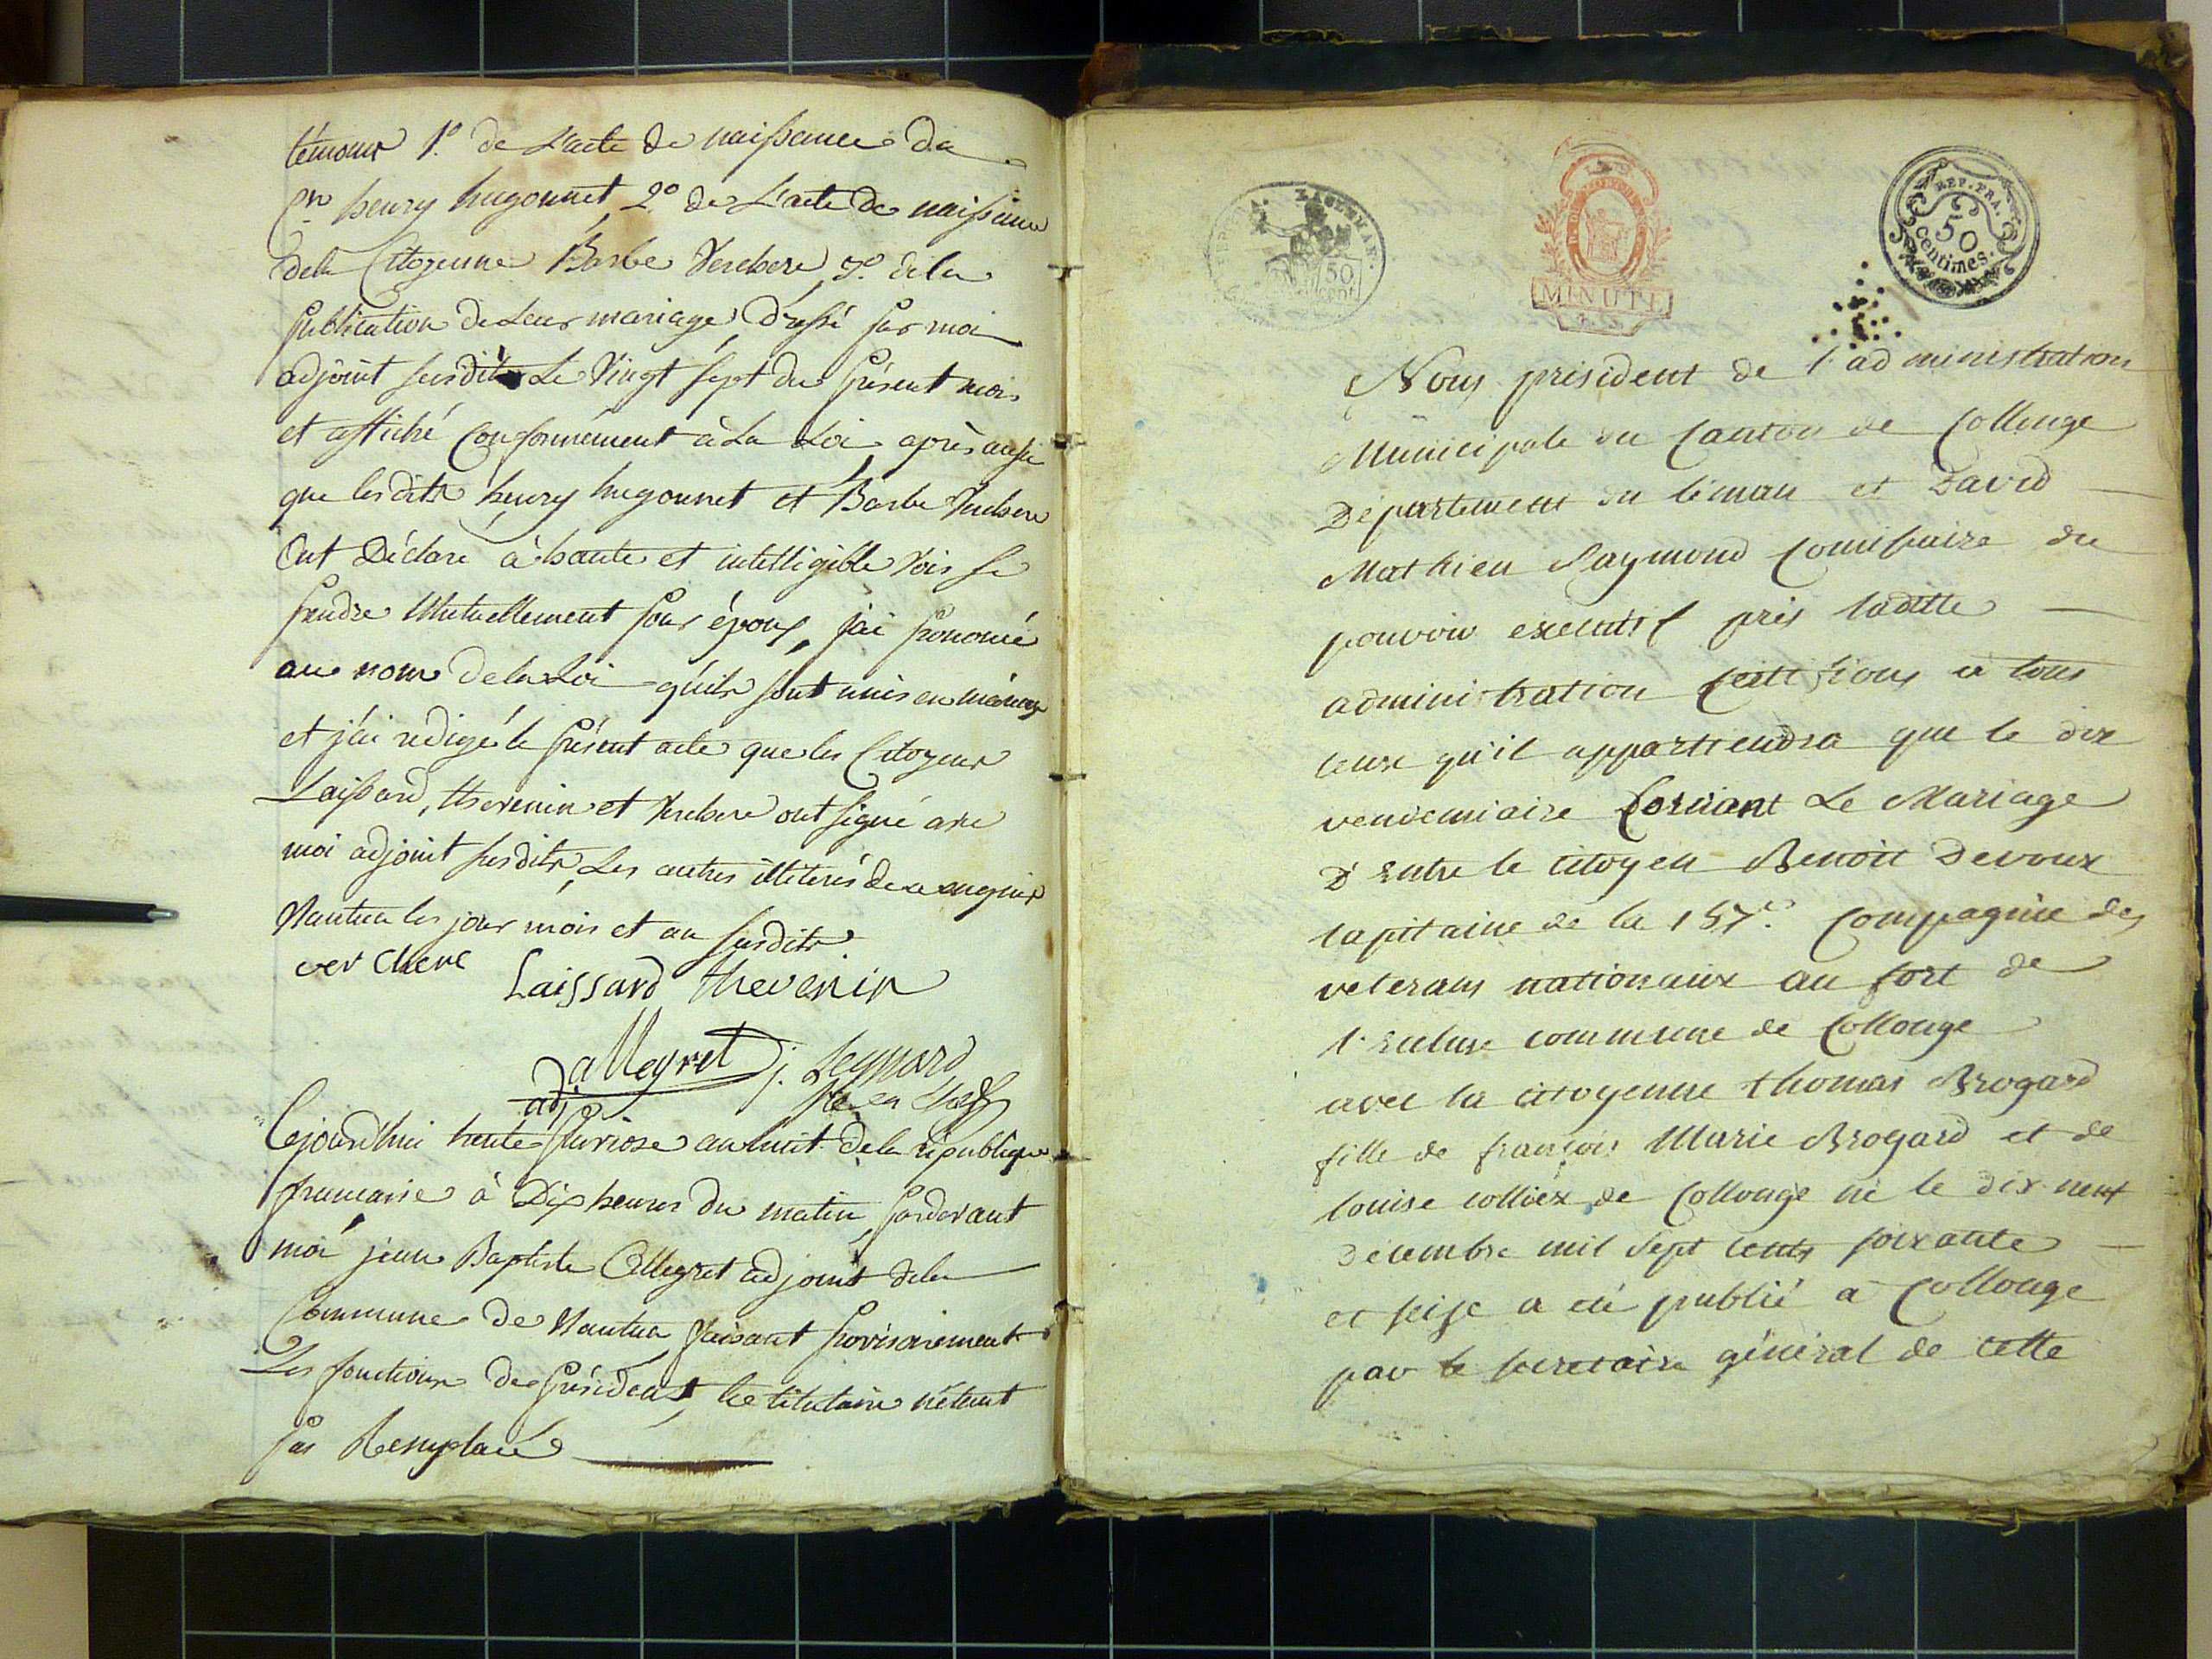 témoins 1.° de L'acte de naissance du
C.en henry hugonnet, 2.° de L'acte de naissance
dela Citoyenne Barbe Verchere, 3.° dela
publication de Leur mariage, dressé par moi
adjoint susdit Le Vingt sept du présent mois
et affiché Conformément à La Loi, après aussi
que lesdits henry hugonnet et Barbe Verchere
Ont Déclaré à haute et intelligible Voix se
prendre Mutuellement pour époux, j'ai prononcé
au nom dela Loi qu'ils sont unis en mariage
et j'ai redigé le présent acte que les Citoyens
Laissard, thevenin et Verchere ont signé avec
moi adjoint susdit, Les autres illiterés de ce enquis
Nantua les jour mois et an susdits
ver chere
Laissard thevenin
allegret j. Leynard
adj.
Cejourd'hui trente pluviose an huit dela république
francaise à Dix heures du matin, pardevant
moi jean Baptiste Allegret adjoint dela
Commune de Nantua, faisant provisoirement
Les fonctions de président, le titulaire n'étant
pas Remplacé
REP. FRA.
50
centimes.
50
cent
MINUTE
Nous president de l'administration
Municipale du Canton de Collonge
Département du léman et David
Mathieu Raymond Comissaire du
pouvoir executif près ladite
administration Certifions à tous
ceux qu'il appartiendra que le dix
vendemiaire Cornant Le Mariage
D'Entre le citoyen Benoit Devoux
Capitaine de la 157.e Compagnie des
veterans nationaux au fort de
l'ecluse commune de Collonge
avec la citoyenne thomas Brogard
fille de françois Marie Brogard et de
louise colliex de Collonge né le dix neuf
décembre mil sept cents soixante
et seise a été publié à Collonge
par le secretaire général de cette